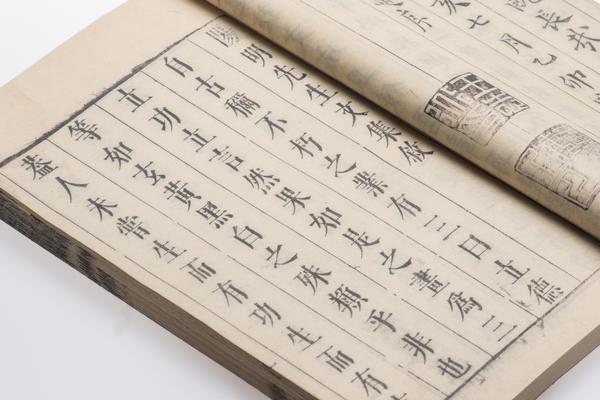 長
亥七月乙卯
序
陽明先生文集敘
自古稱不朽之業有三曰立德
立功立言然果如是之畫爲三
等如玄黃黑白之殊類乎非也
葢人未嘗生而有功生而有